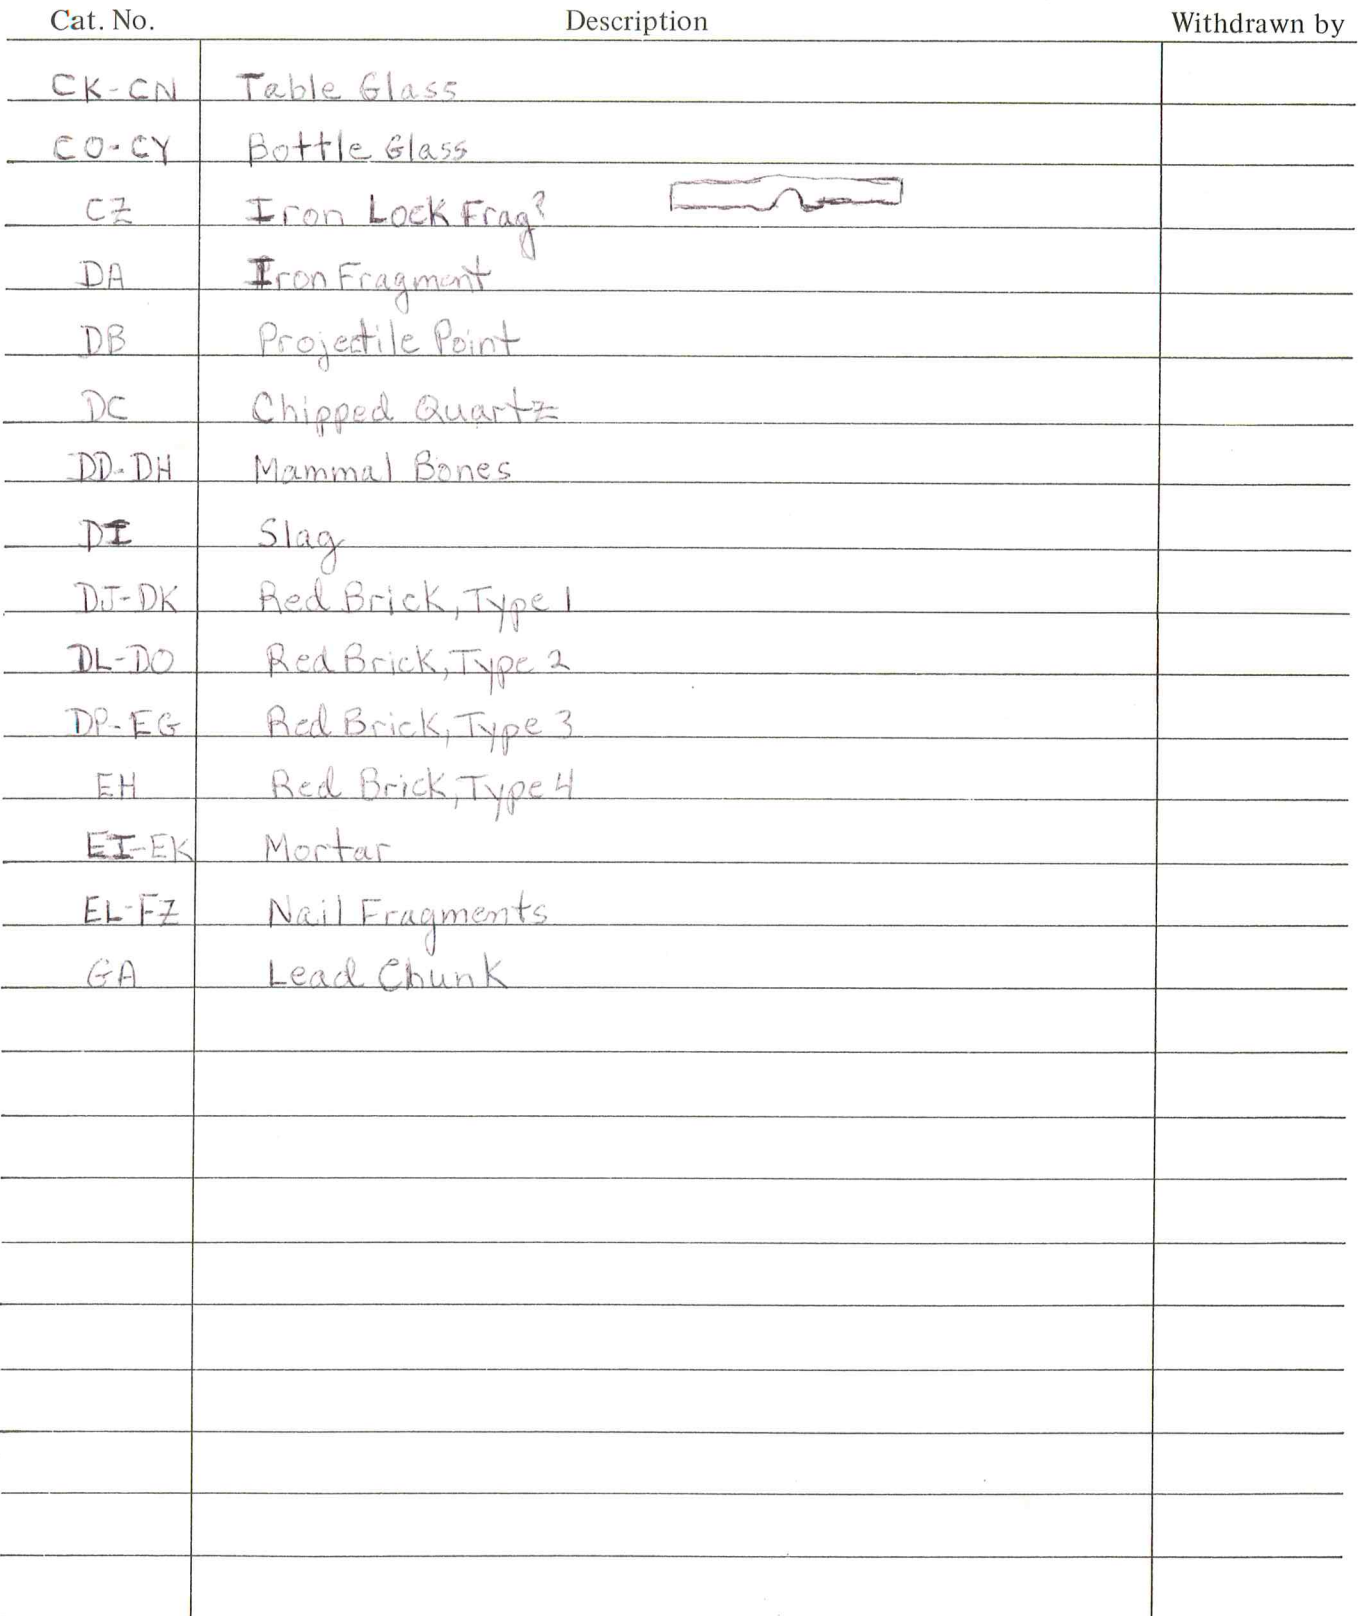 Cat. No. Description Withdrawn by
CK-CN Table Glass
CO-CY Bottle Glass
CZ Iron Lock Frag?
DA Iron Fragment
DB Projectile Point
DC Chipped Quartz
DD-DH Mammal Bones
DI Slag
DJ-DK Red Brick, Type 1
DL-DO Red Brick, Type 2
DP-EG Red Brick, Type 3
EH Red Brick, Type 4
EI-EK Mortar
EL-FZ Nail Fragments
GA Lead Chunk